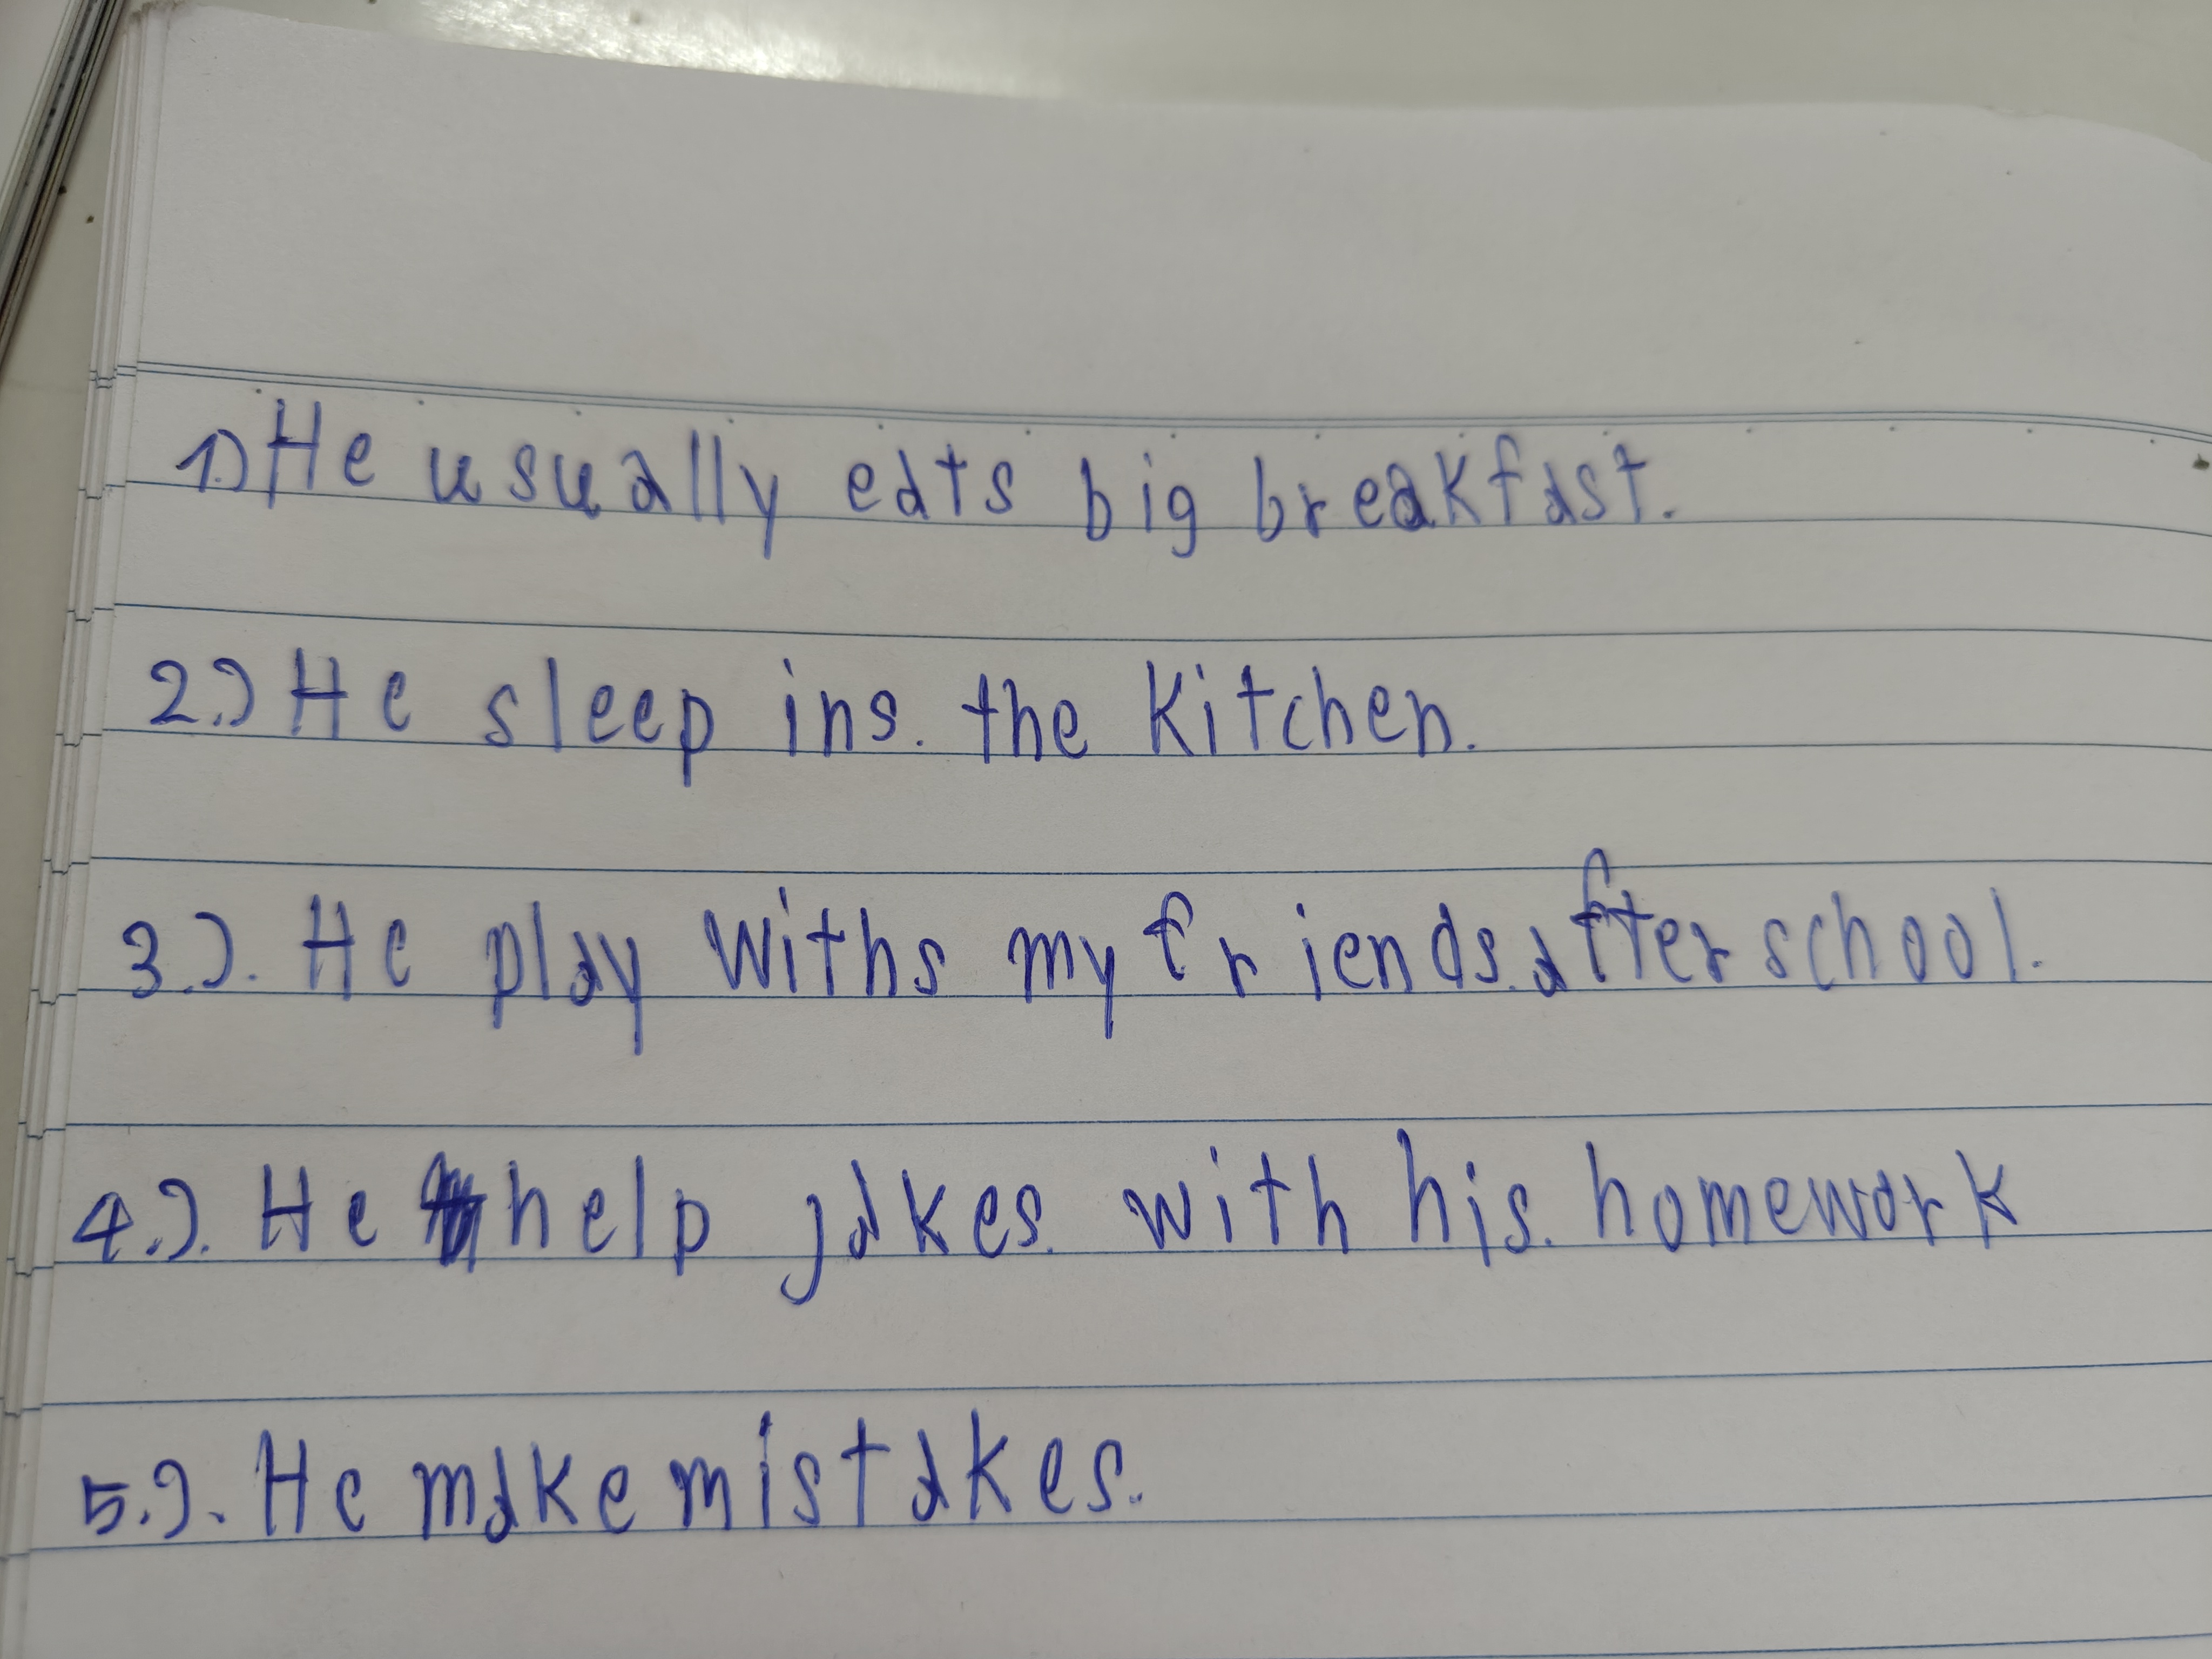 1.) He usually eats big breakfast.
2.) He sleep ins. the kitchen.
3.). He play withs my friends. after school.
4.). He help jakes. with his. homework
5.). He make mistakes.